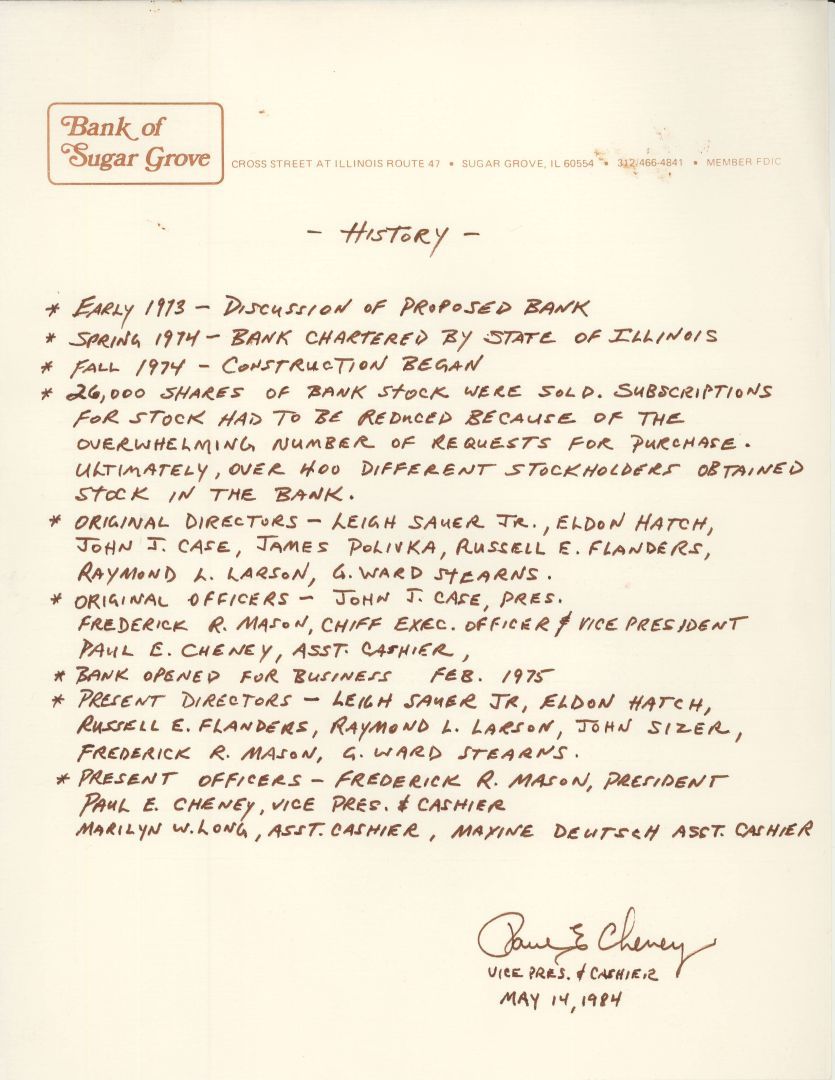 Bank of
Sugar Grove
CROSS STREET AT ILLINOIS ROUTE 47 • SUGAR GROVE, IL 60554 • 312/466-4841 • MEMBER FDIC
- HISTORY -
* EARLY 1973 - DISCUSSION OF PROPOSED BANK
* SPRING 1974 - BANK CHARTERED BY STATE OF ILLINOIS
* FALL 1974 - CONSTRUCTION BEGAN
* 26,000 SHARES OF BANK STOCK WERE SOLD. SUBSCRIPTIONS
FOR STOCK HAD TO BE REDUCED BECAUSE OF THE
OVERWHELMING NUMBER OF REQUESTS FOR PURCHASE.
ULTIMATELY, OVER 400 DIFFERENT STOCKHOLDERS OBTAINED
STOCK IN THE BANK.
* ORIGINAL DIRECTORS - LEIGH SAUER JR., ELDON HATCH,
JOHN J. CASE, JAMES POLIVKA, RUSSELL E. FLANDERS,
RAYMOND L. LARSON, G. WARD STEARNS.
* ORIGINAL OFFICERS - JOHN J. CASE, PRES.
FREDERICK R. MASON, CHIEF EXEC. OFFICER & VICE PRESIDENT
PAUL E. CHENEY, ASST. CASHIER,
* BANK OPENED FOR BUSINESS FEB. 1975
* PRESENT DIRECTORS - LEIGH SAUER JR, ELDON HATCH,
RUSSELL E. FLANDERS, RAYMOND L. LARSON, JOHN SIZER,
FREDERICK R. MASON, G. WARD STEARNS.
* PRESENT OFFICERS - FREDERICK R. MASON, PRESIDENT
PAUL E. CHENEY, VICE PRES. & CASHIER
MARILYN W. LONG, ASST. CASHIER, MAXINE DEUTSCH ASST. CASHIER
Paul E Cheney
VICE PRES. & CASHIER
MAY 14, 1984